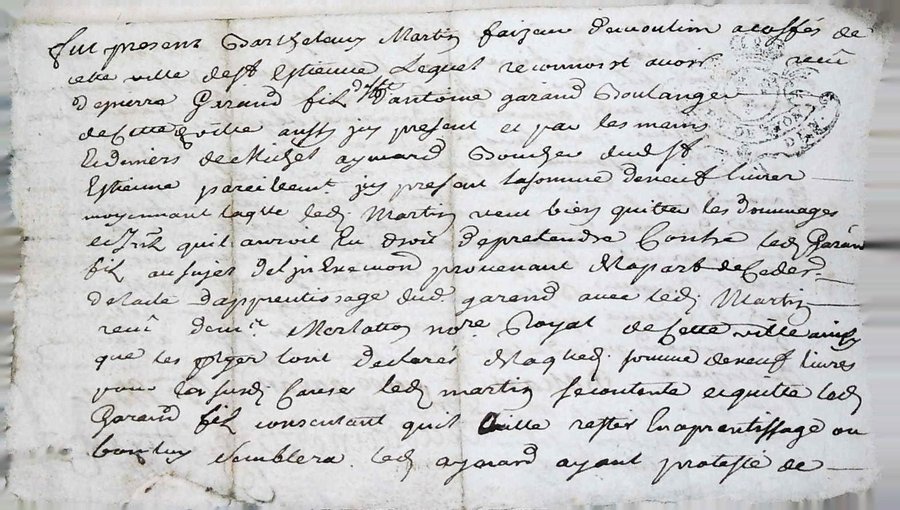 fut present Barthelemy Martin faizeur de moulin a caffés de
cette ville de st Estienne Lequel reconnoist avoir receu
de pierre Garand fils d'antoine garand Boulanger
de Cette ville aussy icy present et par les mains
Et deniers de Michel aymard Boucher dud st
Estienne pareillemt icy present la somme de neuf livres
moyennant laqlle led Martin veut bien quitter les dommages
et qu'il auroit En droit de pretendre Contre led Garan
fils au sujet de l'inExecution provenant de la part de Ced
de lacte d'apprentissage dud garand avec led Martin
receu de me Morlatton nore Royal de Cette ville ainsy
que les ptyes lont declarés de laqued somme de neuf livres
pour les susd Causes led martin se contente et quitte led
Garand fils consentant qu'il aille rester En aprentissage ou
bon luy semblera led aymard ayant protesté de